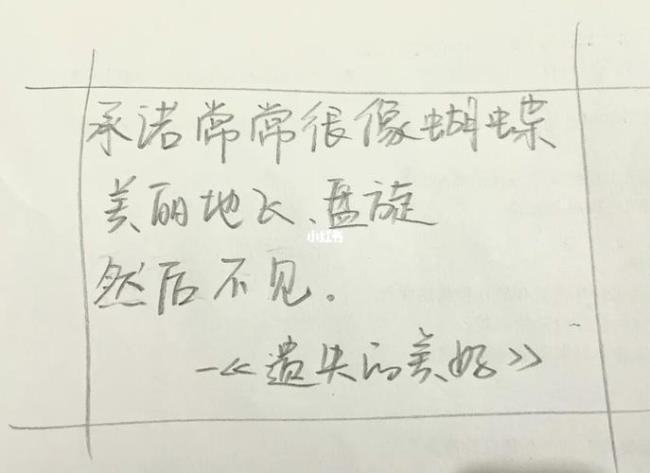 承诺常常很像蝴蝶
美丽地飞、盘旋
然后不见.
—《遗失的美好》
小红书